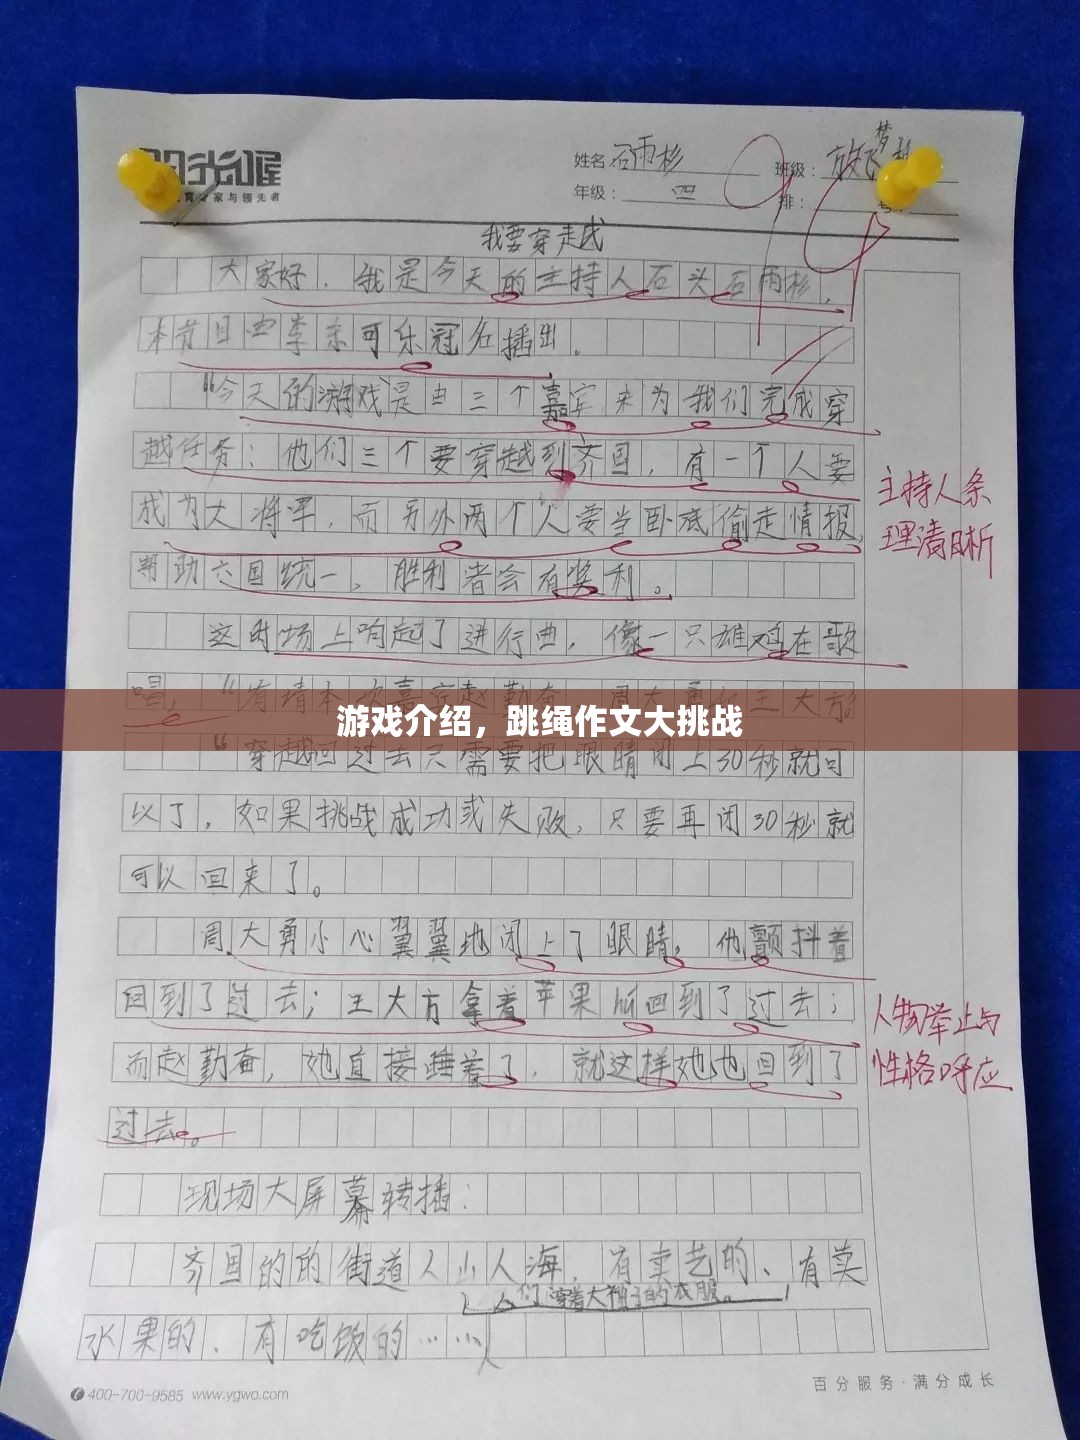 阳光喔
教育专家与领先者
姓名 石雨杉 班级： 放飞梦想
年级： 四 排： 号：
99
我要穿走越
大家好，我是今天的主持人石头石雨杉，
本节目由李东可乐冠名播出。
“今天的游戏是由三个嘉宾来为我们完成穿
越任务：他们三个要穿越到齐国，有一个人要
成为大将军，而另外两个人要当卧底偷走情报，
帮助六国统一，胜利者会有奖利。
主持人条
理清晰
这时场上响起了进行曲，像一只雄鸡在歌
唱，“有请本次嘉宾赵勤奋、周大勇和王大方。
游戏介绍，跳绳作文大挑战
“穿越回过去只需要把眼睛闭上30秒就可
以了，如果挑战成功或失败，只要再闭30秒就
可以回来了。
周大勇小心翼翼地闭上了眼睛，他颤抖着
回到了过去；王大方拿着苹果回到了过去；
而赵勤奋，她直接睡着了，就这样她也回到了
过去。
人物举止与
性格呼应
现场大屏幕转播：
齐国的的街道人山人海，有卖艺的、有卖
人们穿着大袖子的衣服。
水果的、有吃饭的……
400-700-9585 www.ygwo.com
百分服务·满分成长